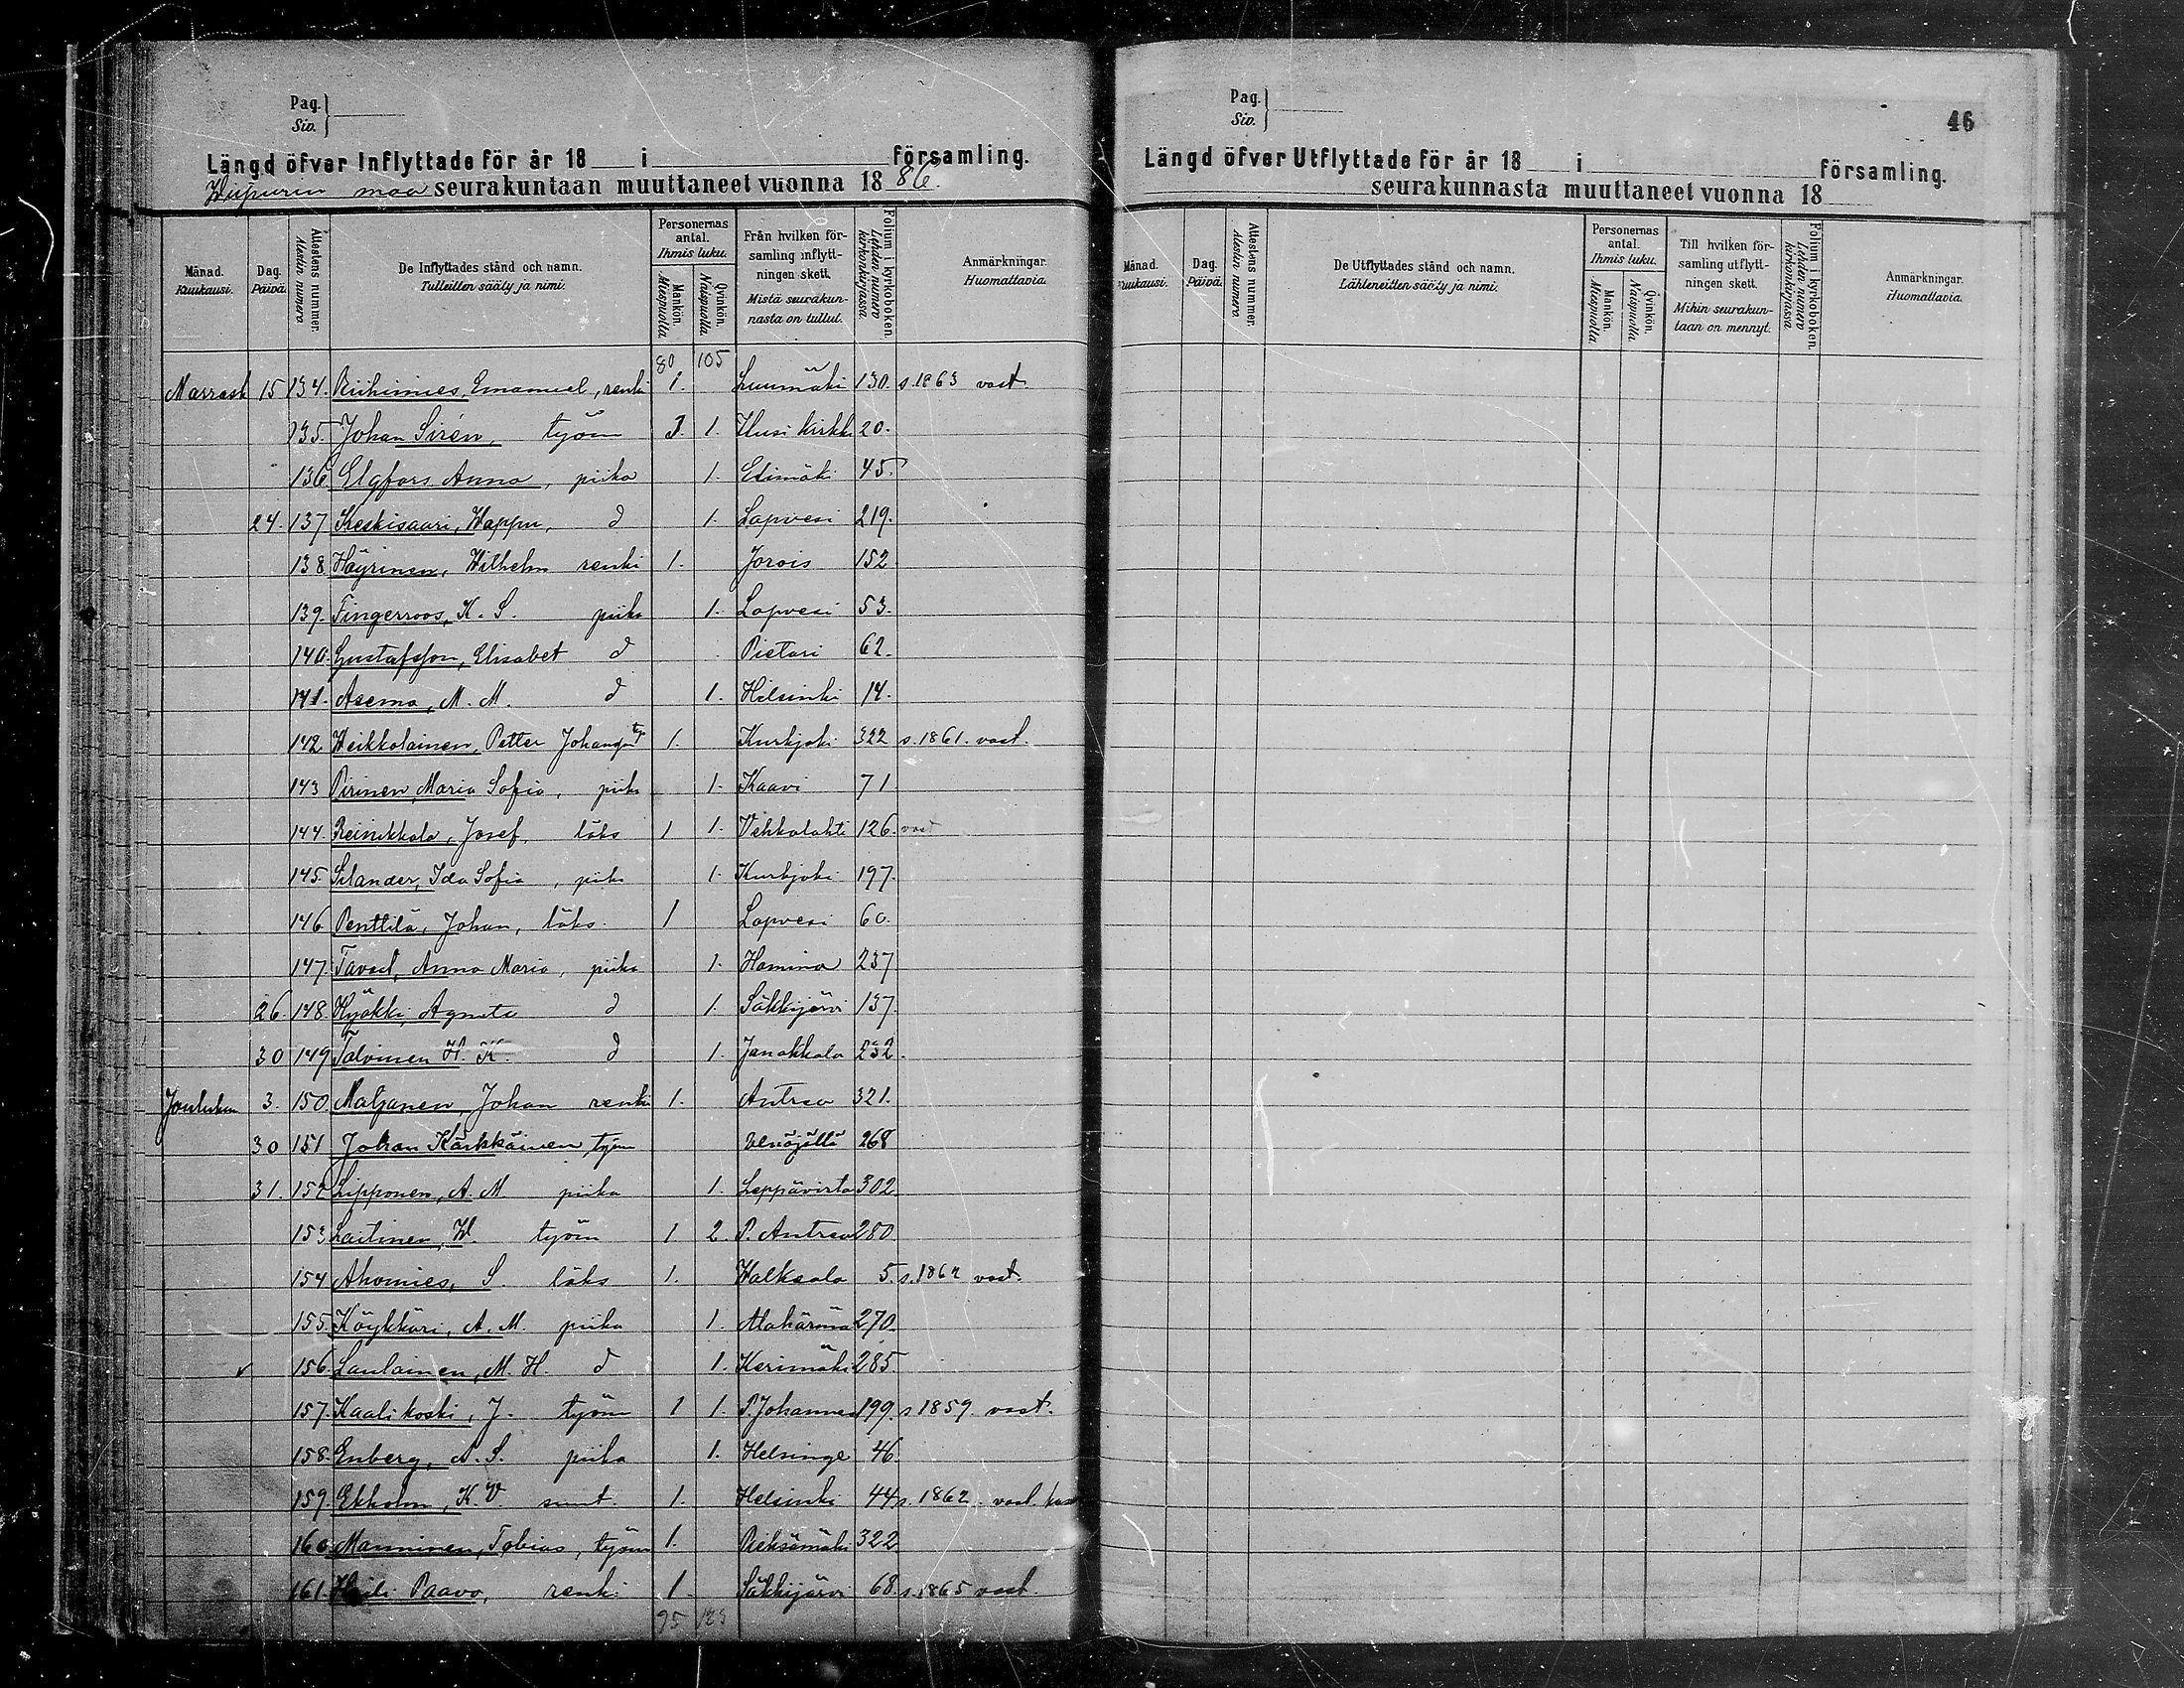 Pag.
Siv.
Längd öfver Inflyttade för år 18 i församling.
Wiipurin maa seurakuntaan muuttaneet vuonna 1886.
Månad. Kuukausi.
Dag. Päivä.
Attestens nummer. Atestin numero
De Inflyttades stånd och namn. Tulleitten sääty ja nimi.
Personernas antal. Ihmis luku.
Mankön. Miespuolia
Qvinkön. Naispuolia
Från hvilken församling inflyttningen skett. Mistä seurakunnasta on tullut.
Folium i kyrkoboken. Lehden numero kirkonkirjassa.
Anmärkningar. Huomattavia.
80 105
Marrask 15 134. Riihimies, Emanuel, renki 1. Luumäki 130. s. 1863 vast.
135. Johan Sirén, työm 3. 1. Uusi kirkko 20.
136. Elgfors Anna, piika 1. Elimäki 45.
24. 137 Keskisaari, Wappu, d 1. Lapvesi 219.
138 Häyrinen, Wilhelm renki 1. Jorois 152
139. Fingerroos, K. S. piika 1. Lapvesi 53.
140. Gustafsson, Elisabet d Pietari 62.
141. Asema, M. M. d 1. Helsinki 14.
142. Weikkolainen, Petter Johanp. 1. Kurkjoki 322 s. 1861. vast.
143 Pirinen, Maria Sofia, piika 1. Kaavi 71
144. Reinikkala, Josef, läks 1 1. Vehkalahti 126. vast
145. Silander, Ida Sofia, piika 1. Kurkjoki 197.
146 Penttilä, Johan, läks. 1 Lapvesi 60.
147. Tavast, Anna Maria, piika 1. Hamina 237
26. 148. Hyökki, Agneta d 1. Säkkijärvi 137.
30 149 Talvinen H. K. d 1. Janakkala 232.
Joulukuu 3. 150. Maljanen, Johan renki 1. Antrea 321.
30 151 Johan Kärkkäinen työm Venäjältä 268
31. 152 Lipponen, A. M. piika 1. Leppävirta 302.
153 Laitinen, W. työm 1 2. P. Antrea 280.
154 Ahomies, S. läks 1. Walkeala 5. s. 1862 vast.
155. Köykkäri, A. M. piika 1. Alahärmä 270.
156. Laulainen, M. H. d 1. Kerimäki 285.
157. Kaalikoski, J. työm 1 1. P. Johannes 199. s 1859. vast.
158. Enberg, A. S. piika 1. Helsinge 46.
159. Ekholm, K. V. sunt. 1. Helsinki 44 s. 1862. vast.
160 Manninen, Tobias, työm 1. Pieksämäki 322.
161. Paavo, renki 1. Säkkijärvi 68. s. 1865 vast.
95 123
Pag.
Siv.
46
Längd öfver Utflyttade för år 18 i församling.
seurakunnasta muuttaneet vuonna 18
Månad. Kuukausi.
Dag. Päivä.
Attestens nummer. Atestin numero
De Utflyttades stånd och namn. Lähteneitten sääty ja nimi.
Personernas antal. Ihmis luku.
Mankön. Miespuolia
Qvinkön. Naispuolia
Till hvilken församling utflyttningen skett. Mihin seurakuntaan on mennyt.
Folium i kyrkoboken. Lehden numero kirkonkirjassa.
Anmärkningar. Huomattavia.